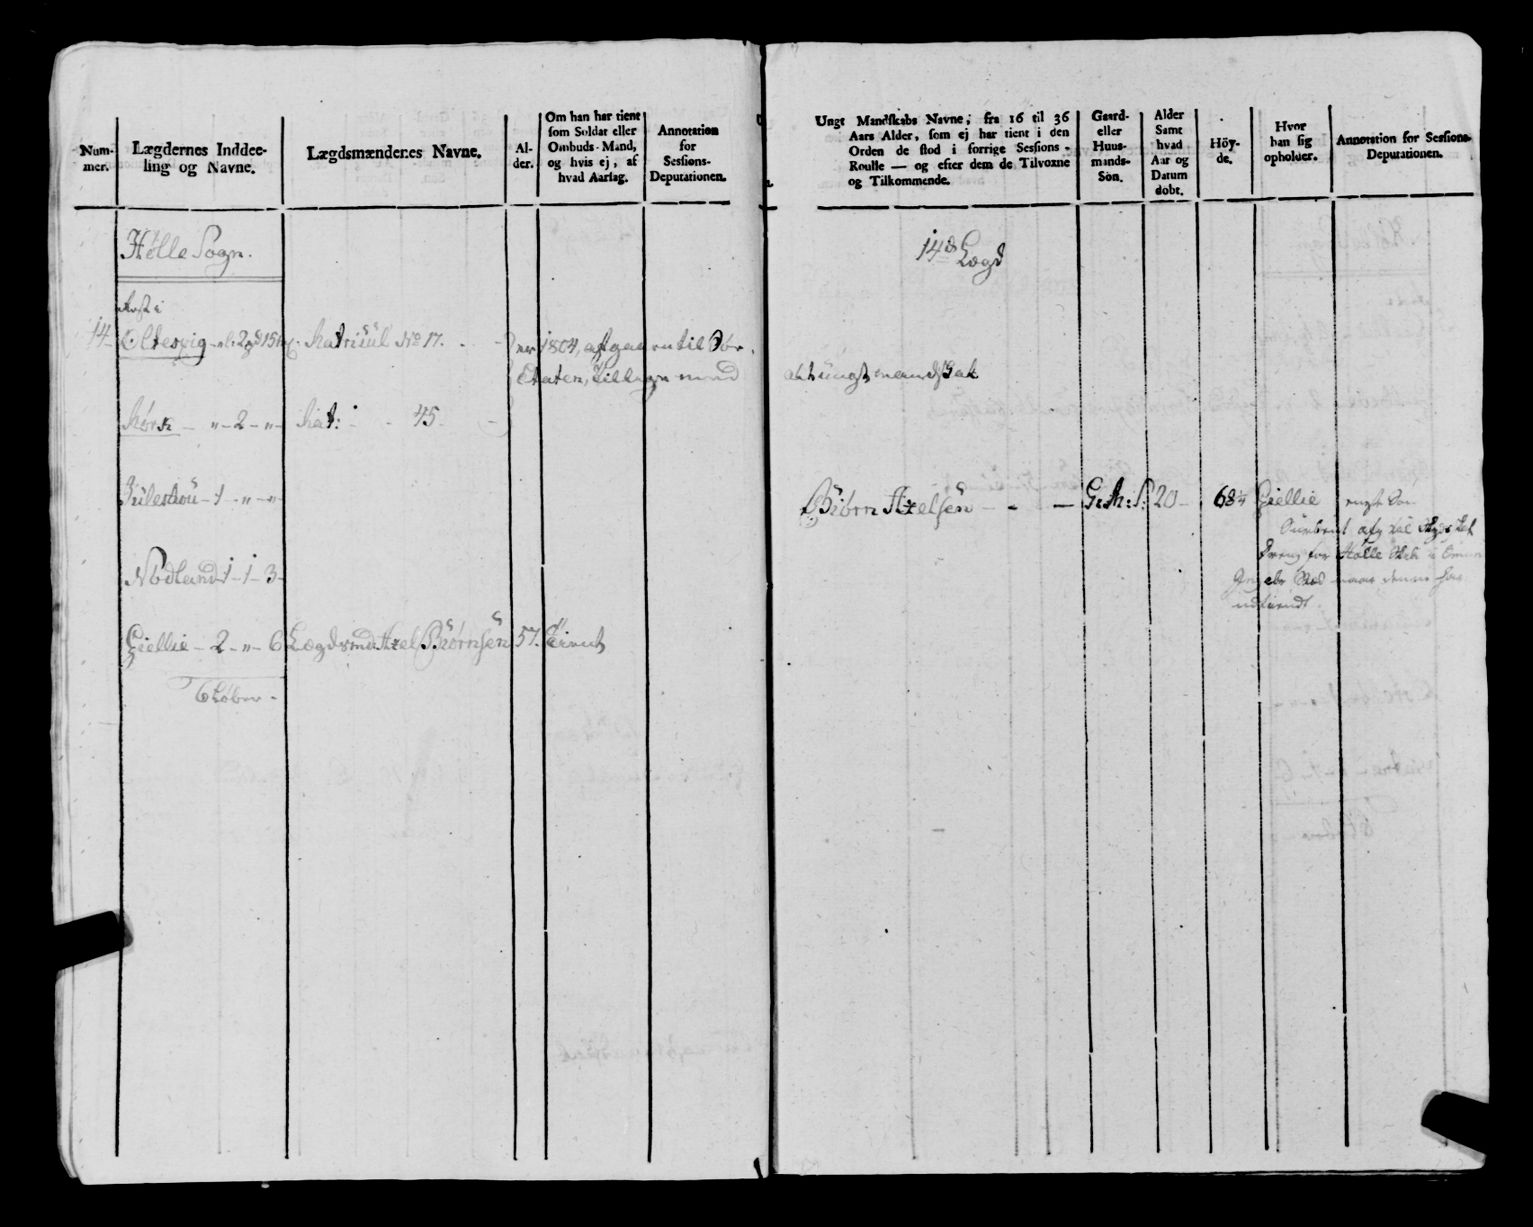 Num-
mer.
Lægdernes Inddee-
ling og Navne.
Lægdsmændenes Navne.
Al-
der.
Om han har tient
som Soldat eller
Ombuds-Mand,
og hvis ej, af
hvad Aarsag.
Annotation
for
Sessions-
Deputationen.
Hølle Sogn.
14
Oltespig
Matriúl No 17.
er 1804, afgaaen til Søe
Etaten, tilligemed
Mørk - " - 2 - " -
Mat: - - 45 -
Júleskou - 1 - " - " -
Nødland 1 - 1 - 3 -
Giellie - 2 - " - 6
Lægdsmd: Axel Biørnsen
57.
Tient
6 Løber -
Ungt Mandskabs Navne, fra 16 til 36
Aars Alder, som ej har tient i den
Orden de stod i forrige Sessions-
Roulle — og efter dem de Tilvoxne
og Tilkommende.
Gaard-
eller
Huus-
mands-
Sön.
Alder
Samt
hvad
Aar og
Datum
dobt.
Höy-
de.
Hvor
han sig
opholder.
Annotation for Sessions-
Deputationen.
14de Lægd
alt úngt mandskab
Biörn Axelsön - - —
G: M: S:
20 -
68 1/4
Giellie
for Hølle
naar denne har
udtient